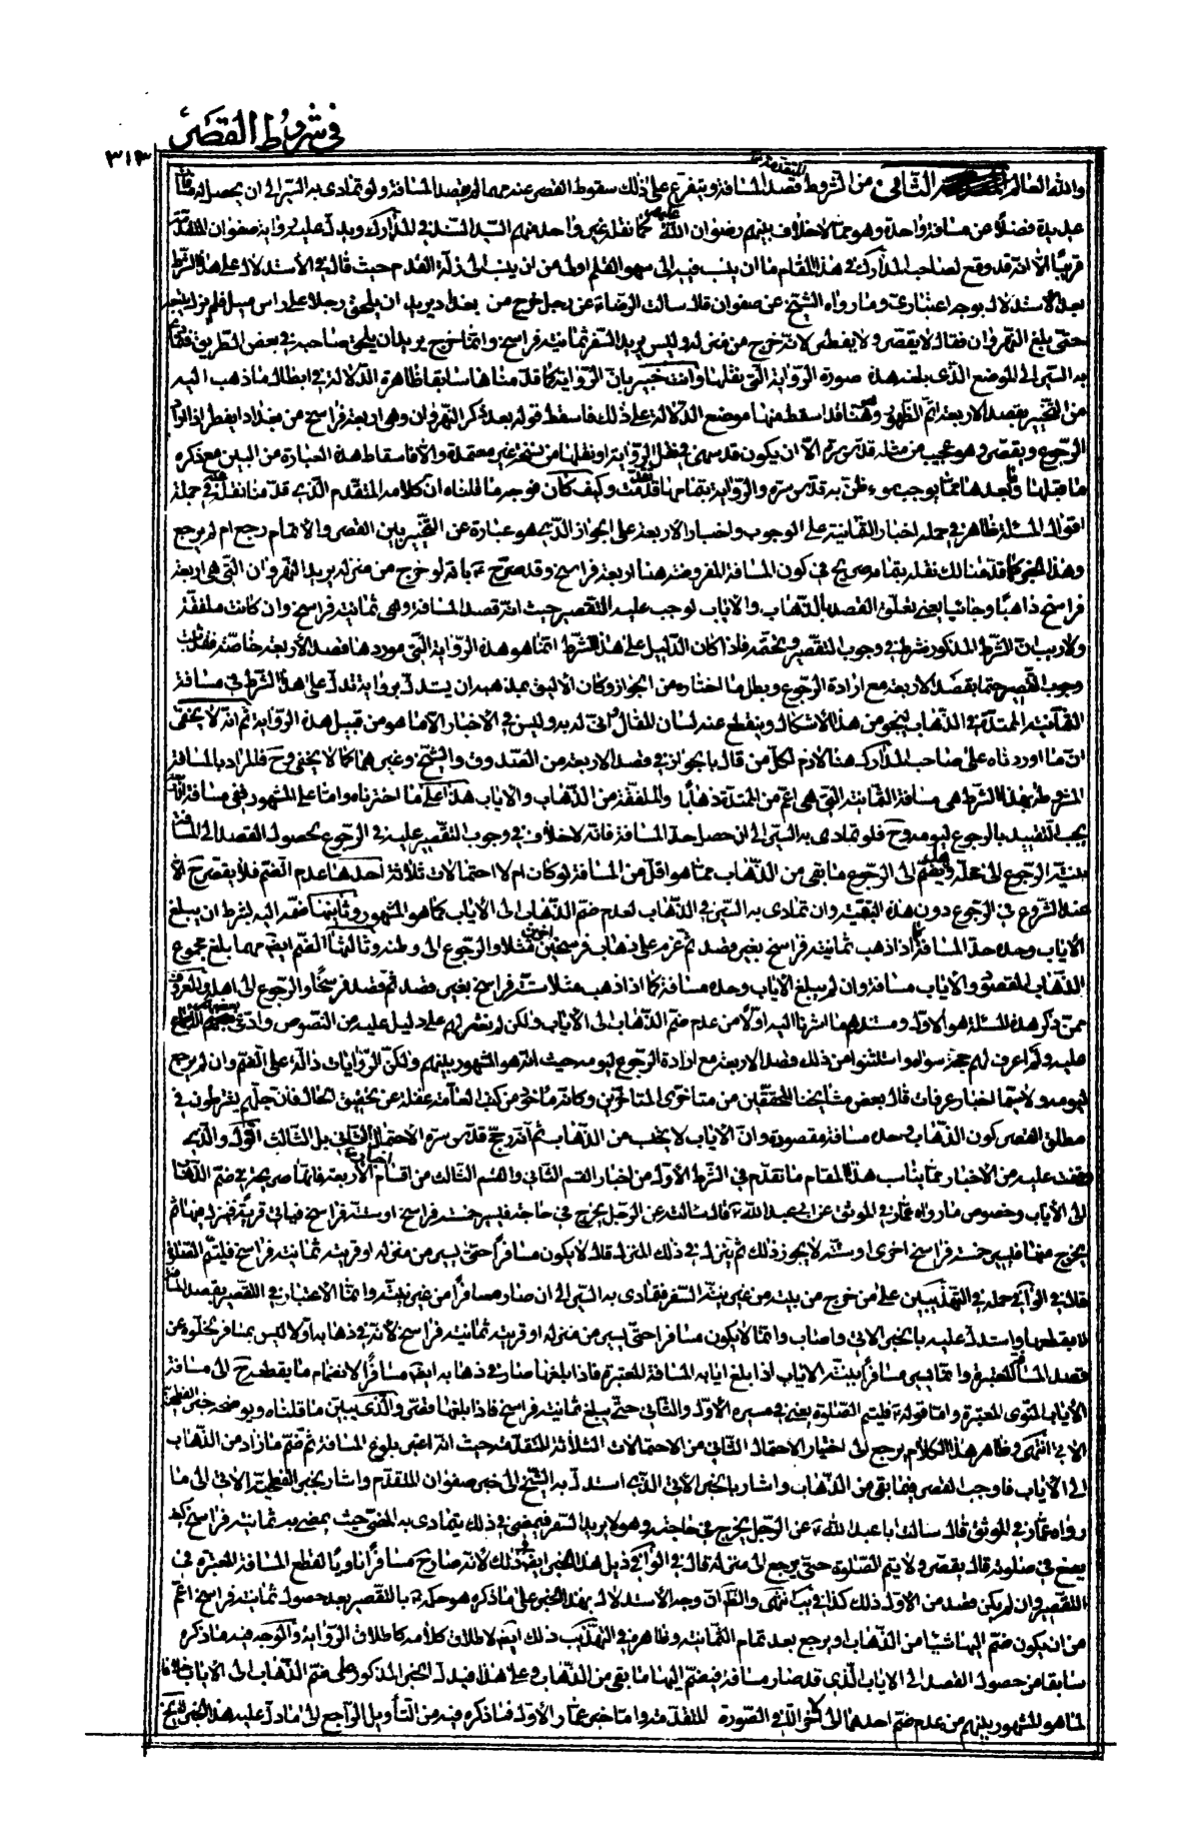 في شروط القصر
٣١٣
والله العالم الثاني من الشروط المتقدمة قصد المسافة ويتفرع على ذلك سقوط القصر عند عدم قصد المسافة ولو تمادى به السير الى ان يحصل له مسافات
عديدة فضلًا عن مسافة واحدة وهو مما لا خلاف بينهم رضوان الله عليهم كما نقله غير واحد منهم السيد السند في المدارك ويدل عليه رواية صفوان المتقدمة
قريبًا الا انه قد وقع لصاحب المدارك في هذا المقام ما ان ينسب فيه الى سهو القلم اولى من ان ينسب الى زلة القدم حيث قال في الاستدلال على هذا الشرط
بعد الاستدلال بوجه اعتباري وما رواه الشيخ عن صفوان قال سالت الرضا ع عن رجل خرج من بغداد يريد ان يلحق رجلا على راس ميل فلم يزل يتبعه
حتى بلغ النهروان فقال لا يقصر ولا يفطر لانه خرج من منزله وليس يريد السفر ثمانية فراسخ وانما خرج يريد ان يلحق صاحبه في بعض الطريق فتمادى
به السير الى الموضع الذي بلغه هذه صورة الرواية التي نقلها وانت خبير بان الرواية كما قدمناها سابقا ظاهرة الدلالة في ابطال ما ذهب اليه
من التخيير بقصد الاربعة اتم الظهور وهنا قد اسقط منها موضع الدلالة على ذلك فاسقط قوله بعد ذكر النهروان وهي اربعة فراسخ من بغداد ايفطر اذا اراد
الرجوع ويقصر وهو عجيب من مثله قدس سره الا ان يكون قد سهى في نقل الرواية او نقلها من نسخة غير معتمدة والا فاسقاط هذه العبارة من البين مع ذكره
ما قبلها وما بعدها مما يوجب سوء ظن به قدس سره والرواية بتمامها قد تقدمت وكيف كان فوجه ما قلناه ان كلامه المتقدم الذي قدمنا نقله في جملة
اقوال المسئلة ظاهر في حمله اخبار الثمانية على الوجوب واخبار الاربعة على الجواز الذي هو عبارة عن التخيير بين القصر والاتمام رجع ام لم يرجع
وهذا الخبر كما قدمنا لك نقله بتمامه صريح في كون المسافة المفروضة هنا اربعة فراسخ وقد صرح ع بانه لو خرج من منزله يريد النهروان التي هي اربعة
فراسخ ذاهبًا وجائيا يعني تعلق القصد بالذهاب والاياب لوجب عليه التقصير حيث انه قصد المسافة وهي ثمانية فراسخ وان كانت ملفقة
ولا ريب ان الشرط المذكور شرط في وجوب التقصير وتحتمه فاذا كان الدليل على هذا الشرط انما هو هذه الرواية التي موردها قصد الاربعة خاصة فقد ثبت
وجوب القصر حتما بقصد الاربعة مع ارادة الرجوع وبطل ما اختاره من الجواز وكان الاليق بمذهبه ان يستدل برواية تدل على هذا الشرط في مسافة
الثمانية الممتدة في الذهاب لينجو من هذا الاشكال وينقطع عنه لسان المقال وانى له به وليس في الاخبار الا ما هو من قبيل هذه الرواية ثم انه لا يخفى
ان ما اوردناه على صاحب المدارك هنا لازم لكل من قال بالجواز في قصد الاربعة من الصدوق والشيخ وغيرهما كما لا يخفى وح فالمراد بالمسافة
المشروطة بهذا الشرط هي مسافة الثمانية التي هي اعم من الممتدة ذهابا والملفقة من الذهاب والاياب هذا على ما اخترناه واما على المشهور ففي مسافة
يجب التقييد بالرجوع ليومه وح فلو تمادى به السير الى ان حصل حد المسافة فانه لا خلاف في وجوب التقصير عليه في الرجوع بحصول القصد الى المسافة
بنية الرجوع الى محله وهل يضم الى الرجوع ما بقى من الذهاب مما هو اقل من المسافة لو كان ام لا احتمالات ثلاثة احدها عدم الضم فلا يقصر ح الا
عند الشروع في الرجوع دون هذه البقية وان تمادى به السير في الذهاب لعدم ضم الذهاب الى الاياب كما هو المشهور وثانيها ضمه اليه بشرط ان يبلغ
الاياب وحده حد المسافة كما اذا ذهب ثمانية فراسخ بغير قصد ثم عزم على ذهاب فرسخين اخرى مثلا والرجوع الى وطنه وثالثها الضم ايضا مهما بلغ مجموع
الذهاب المقصود والاياب مسافة وان لم يبلغ الاياب وحده مسافة كما اذا ذهب مثلا ستة فراسخ بغير قصد ثم قصد فرسخًا والرجوع الى اهله والمعروف
ممن ذكر هذه المسئلة هو الاول ومستندهم ما اشرنا اليه اولا من عدم ضم الذهاب الى الاياب ولكن لم نعثر لهم على دليل عليه من النصوص وادعى بعضهم الاجماع
عليه ولم اعرف لهم حجة سواه واستثنوا من ذلك قصد الاربعة مع ارادة الرجوع ليومه حيث انه هو المشهور بينهم ولكن الروايات دالة على الضم وان لم يرجع
ليومه ولا سيما اخبار عرفات قال بعض مشايخنا المحققين من متاخرى المتاخرين وكانه ماخوذ من كتب العامة غفلة عن تحقيق الحال فان جلهم يشترطون في
مطلق القصر كون الذهاب وحده مسافة مقصودة وان الاياب لا يحسب من الذهاب ثم انه رجح قدس سره الاحتمال الثاني بل الثالث اقول والذي
وقفت عليه من الاخبار مما يناسب هذا المقام ما تقدم في الشرط الاول من اخبار القسم الثاني والقسم الثالث من اقسام اخبار الاربعة فانها صريحة في ضم الذهاب
الى الاياب وخصوص ما رواه عمار في الموثق عن ابي عبد الله ع قال سالت عن الرجل يخرج في حاجة فيسير خمسة فراسخ او ستة فراسخ فيأتي قرية فينزل فيها ثم
يخرج منها فيسير خمسة فراسخ اخرى او ستة لا يجوز ذلك ثم ينزل في ذلك المنزل قال لا يكون مسافرًا حتى يسير من منزله او قريته ثمانية فراسخ فليتم الصلوة
قال في الوافي حمله في التهذيبين على من خرج من بيته من غير نية السفر فتمادى به السير الى ان صار مسافرًا من غير نية وانما الاعتبار في التقصير بقصد المسافة
لا بقطعها واستدل عليه بالخبر الاتي واصاب وانما لا يكون مسافرا حتى يسير من منزله او قريته ثمانية فراسخ لانه في ذهابه اولا ليس بمسافر لخلوه عن
قصد المسافة المعتبرة وانما يسير مسافرا بنية الاياب اذا بلغ ايابه المسافة المعتبرة فاذا بلغها صار في ذهابه ايضا مسافرًا لانضمام ما يقطعه ح الى مسافة
الاياب المنوى المعتبرة واما قوله ع فليتم الصلوة يعني في مسيره الاول والثاني حتى يبلغ ثمانية فراسخ فاذا بلغها قصر والذي يبين ما قلناه ويوضحه خبر الفطحية
الاتي انتهى وظاهر هذا الكلام يرجع الى اختيار الاحتمال الثاني من الاحتمالات الثلاثة المتقدمة حيث انه اعتبر بلوغ المسافة ثم ضم ما زاد من الذهاب
الى الاياب فاوجب القصر فيما بقى من الذهاب واشار بالخبر الاتي الذي استدل به الشيخ الى خبر صفوان المتقدم واشار بخبر الفطحية الاتي الى ما
رواه عمار في الموثق قال سالت ابا عبد الله ع عن الرجل يخرج في حاجة وهو لا يريد السفر فيمضي في ذلك يتمادى به المضي حيث يمضي به ثمانية فراسخ كيف
يصنع في صلوته قال يقصر ولا يتم الصلوة حتى يرجع الى منزله قال في الوافي ذيل هذا الخبر ايضا وذلك لانه صار ح مسافرًا ناويًا لقطع المسافة المعتبرة في
التقصير وان لم يكن قصد من الاول ذلك كذا في يب انتهى والظاهر ان وجه الاستدلال بهذا الخبر على ما ذكره هو حكمه ع بالتقصير بعد حصول ثمانية فراسخ اعم
من ان يكون ضم اليها شيئا من الذهاب او يرجع بعد تمام الثمانية وظاهره في التهذيب ذلك ايضا لاطلاق كلامه كاطلاق الرواية والوجه فيه ما ذكره
سابقا من حصول القصد الى الاياب الذي قد صار مسافة فيضم اليها ما بقى من الذهاب وعلى هذا فيدل الخبر المذكور على ضم الذهاب الى الاياب خلافا
لما هو المشهور بينهم من عدم ضم احدهما الى الاخر الا في الصورة المتقدمة واما خبر عمار الاول فما ذكره فيه من التأويل الراجع الى ما دل عليه هذا الخبر